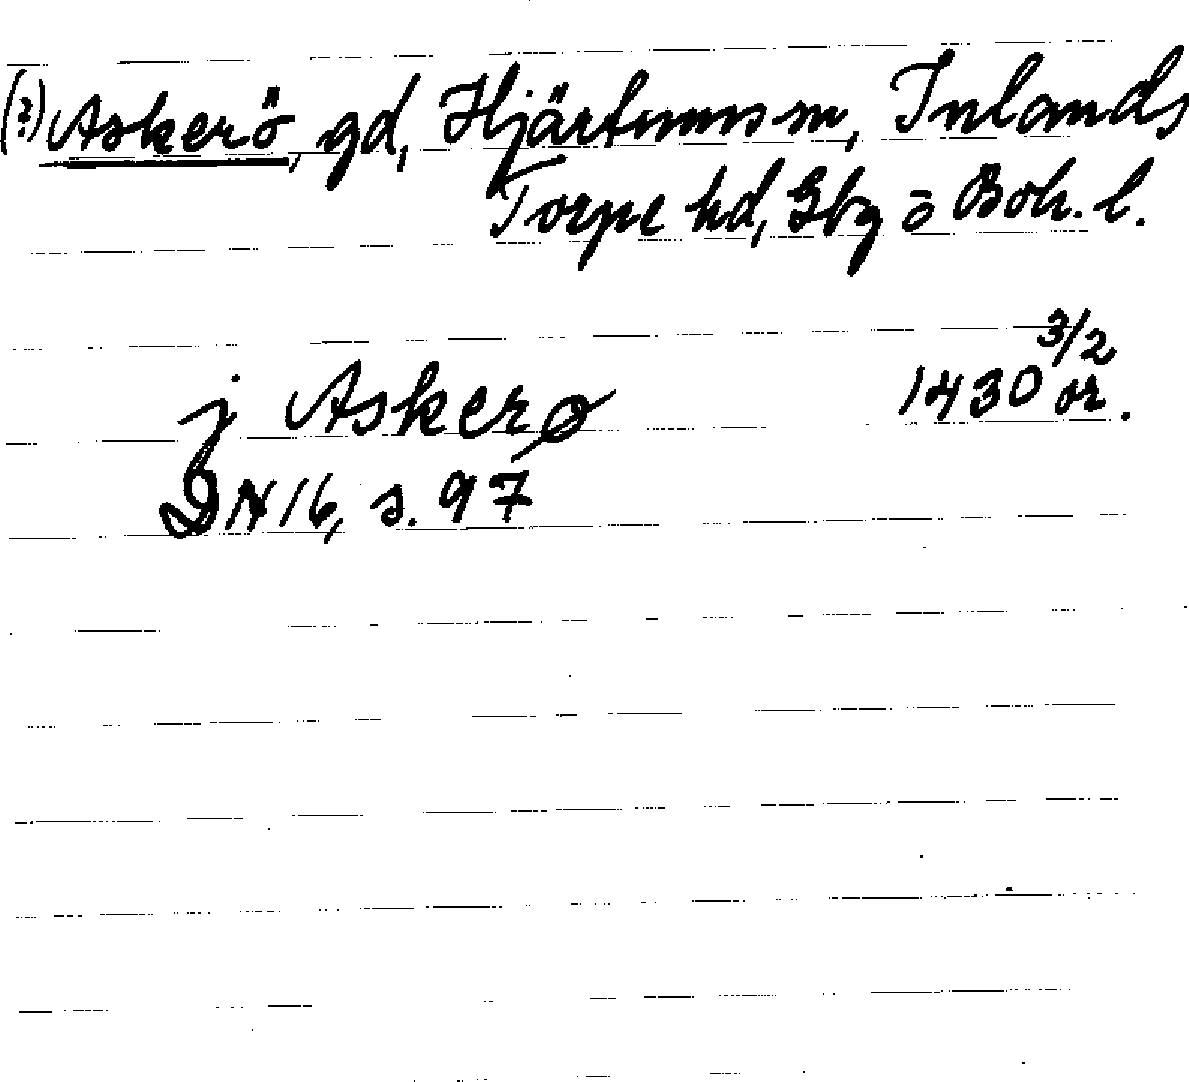 (?) Askerö, gd, Hjärtums sn, Inlands
Torpe hd, Gbg o Boh. l.
j Askerø 1430 3/2 or.
DN 16, s. 97